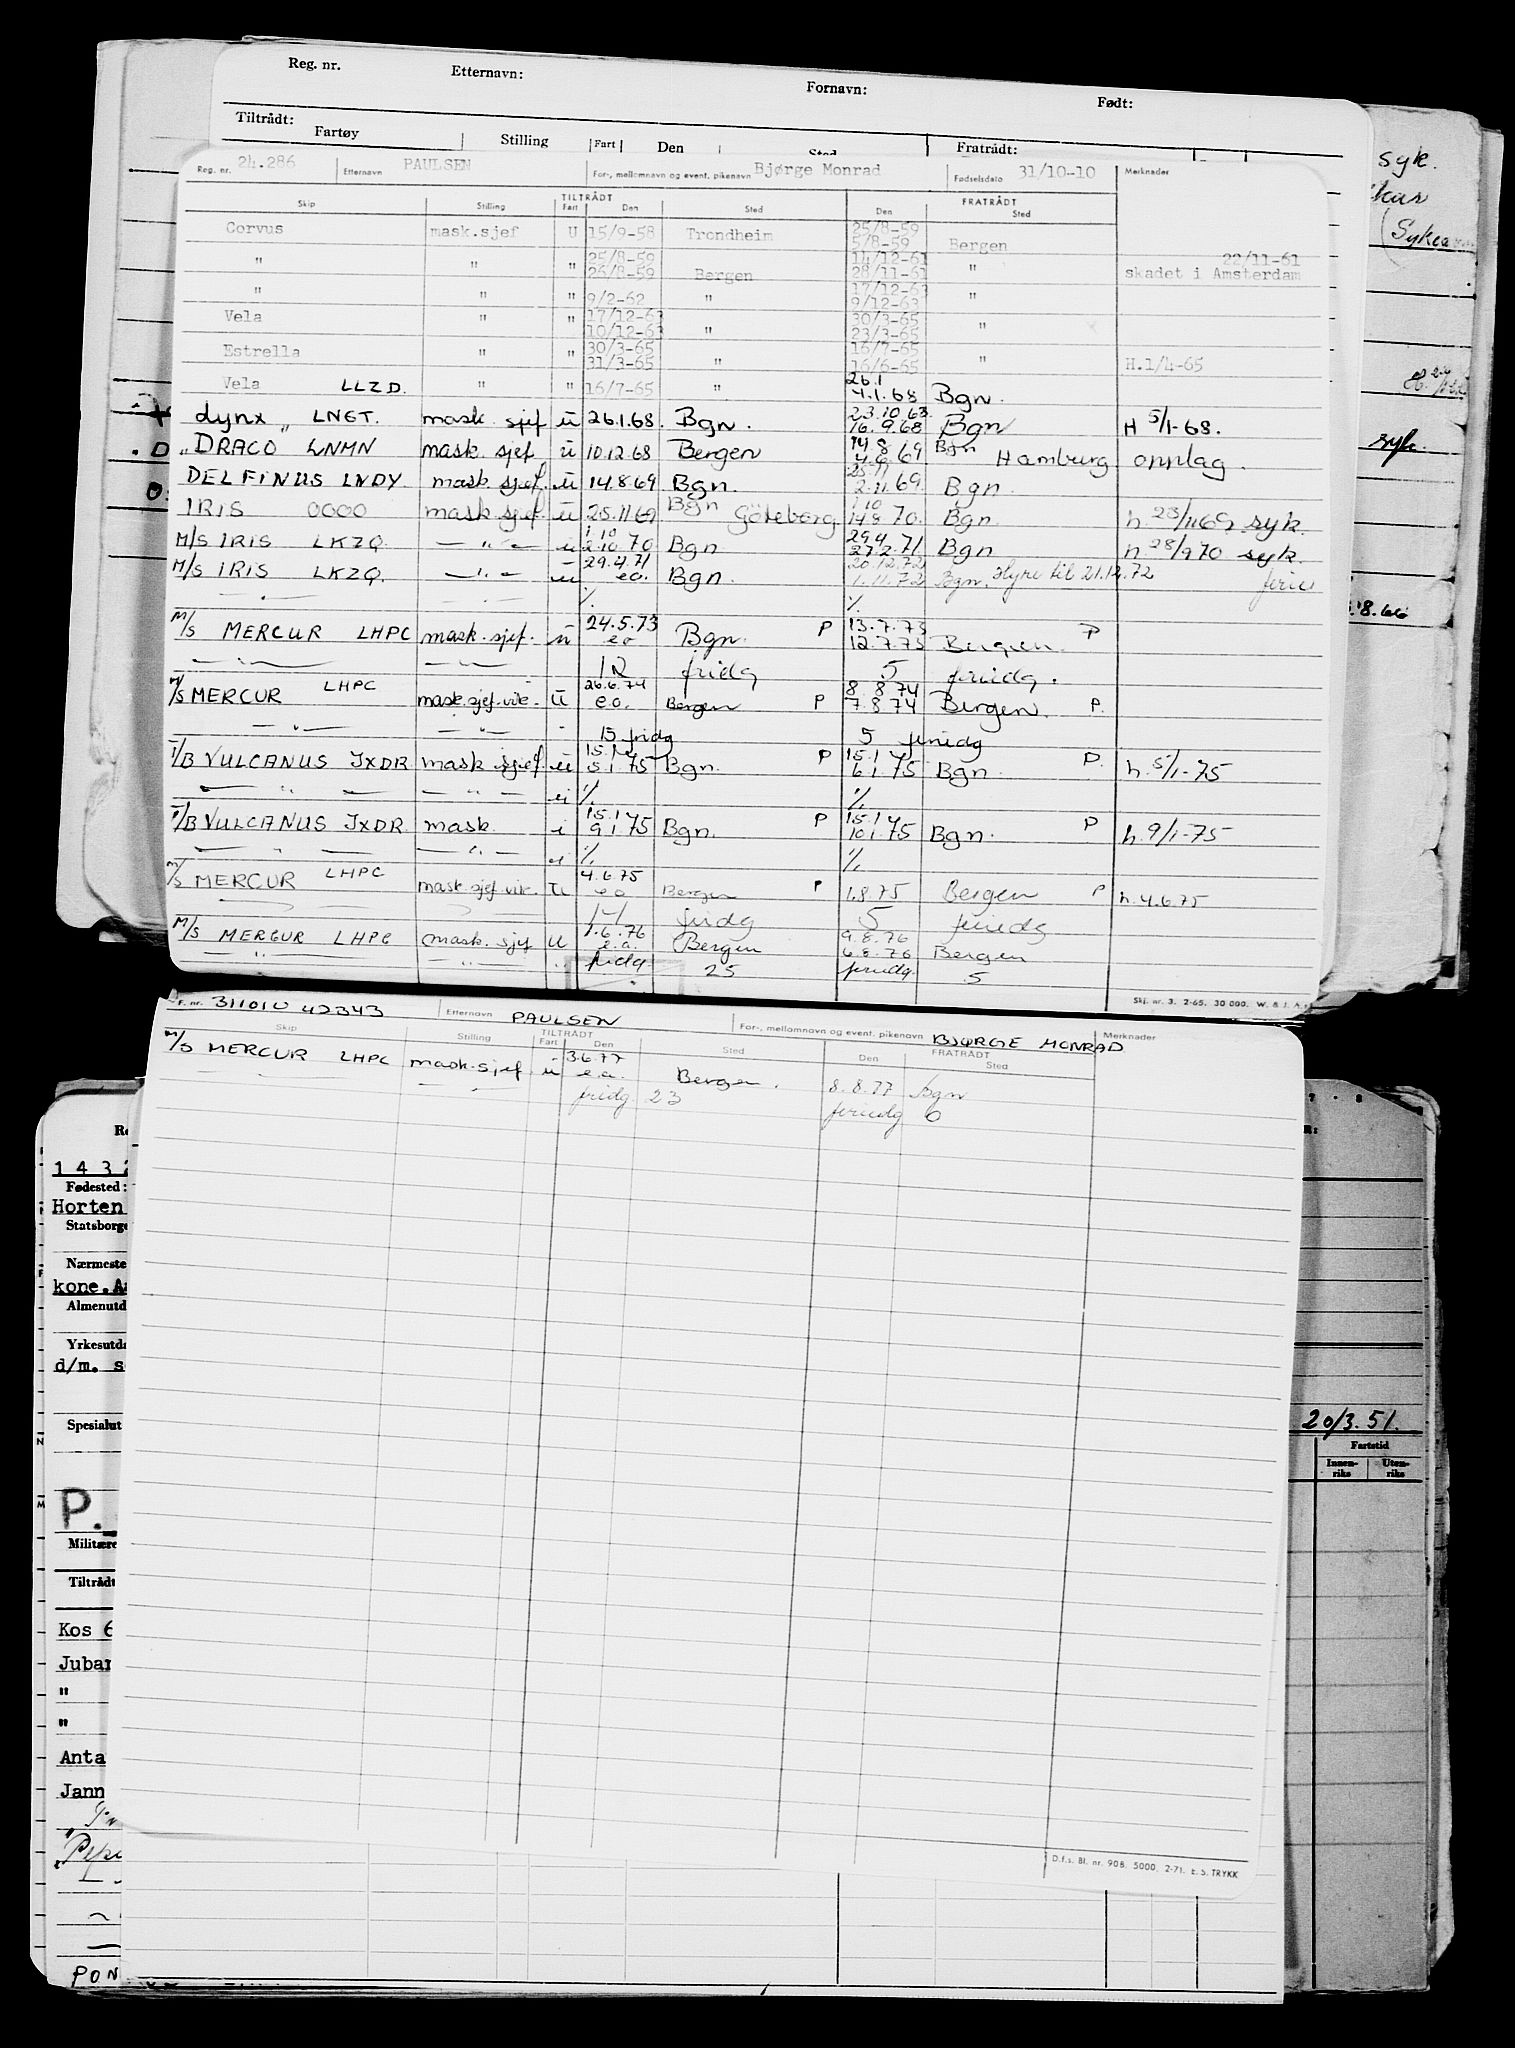 Reg. nr. Etternavn: Fornavn: Født:
Tiltrådt: Fratrådt:
Fartøy Stilling Fart Den Sted
syk.
Reg. nr. 24.286 Etternavn PAULSEN For-, mellomnavn og event. pikenavn Bjørge Monrad Fødselsdato 31/10-10 Merknader
TILTRÅDT FRATRÅDT
Skip Stilling Fart Den Sted Den Sted
Corvus mask.sjef U 15/9-58 Trondheim 25/8-59
5/8-59 Bergen
" " " 25/8-59 14/12-61 " 22/11-61
26/8-59 Bergen 28/11-61 skadet i Amsterdam
" " " 9/2-62 " 17/12-63 "
9/12-63
Vela " " 17/12-63 " 30/3-65 "
10/12-63 23/3-65
Estrella " " 30/3-65 " 16/7-65 "
31/3-65 16/6-65 H.1/4-65
Vela LLZD. " " 16/7-65 " 26.1
4.1.68 Bgn.
Lynx " LNGT. mask. sjef u 26.1.68. Bgn. 23.10.63
16.9.68 Bgn H 5/1-68.
"DRACO LNMN mask. sjef u 10.12.68 Bergen 14.8 Bgn
4.6.69 Hamburg opplag.
DELFINUS LNDY mask. sjef. u 14.8.69 Bgn. 25.11
2.11.69. Bgn.
IRIS OOOO mask sjef. u 25.11.69 Bgn Göteborg 1.10
14.9.70. Bgn. h. 23/11.69 syk.
M/S IRIS LKZQ — " — u 1.10
2.10.70 Bgn 29.4.71
27.2.71 Bgn h 28/9 70 syk.
M/S IRIS LKZQ. — " — u 29.4.71
e.o. Bgn. 20.12.72
1.11.72 Bgn. Hyre til 21.12.72 ferie
%. %.
M/S MERCUR LHPC mask. sjef. u 24.5.73
e.o Bgn. P 13.7.73
12.7.73 Bergen. P
— " — — " — 12 fridg 5 feriedg.
M/S MERCUR LHPC mask. sjef. vik. u 26.6.74
e.o. Bergen P 8.8.74
7.8.74 Bergen. P.
— " — — " — 15 fridg 5 feriedg
T/B VULCANUS JXDR mask sjef. u 15.1
5.1.75 Bgn. P 15.1
6.1.75 Bgn. P. h. 5/1-75
— " — — " — %. %.
T/B VULCANUS JXDR mask. i 15.1
9.1.75 Bgn. P 15.1
10.1.75 Bgn. P h. 9/1-75
— " — — " — %. %.
M/S MERCUR LHPC mask. sjef. vik. u 4.6.75
e.o Bergen P 1.8.75 Bergen P h. 4.6.75
14 fridg 5 feriedg
M/S MERCUR LHPC mask. sjef u 1.6.76
e.a. Bergen 9.8.76
6.8.76 Bergen
— " — — " — fridg. 25 feriedg. 5
Skj. nr. 3. 2-65. 30 000. W. & J. A
F. nr. 311010 42343 Etternavn PAULSEN For-, mellomnavn og event. pikenavn BJØRGE MONRAD Merknader
TILTRÅDT FRATRÅDT
Skip Stilling Fart Den Sted Den Sted
M/S MERCUR LHPC mask. sjef u 3.6.77
e.a. Bergen. 8.8.77 Bgn
fridg. 23 feriedg 0
D.f.s. Bl. nr. 908. 5000. 2-71. E. S. TRYKK
Fødested:
Horten
Statsborge
Nærmeste
kone.
Almenutd
Yrkesutda
d/m. s
Spesialut
P.
Militære
Tiltrådt
Kos 6
Jubar
"
"
Anta
Jann
PON
18.66
syk.
20/3.51.
Fartstid
Innen-
riks Uten-
riks